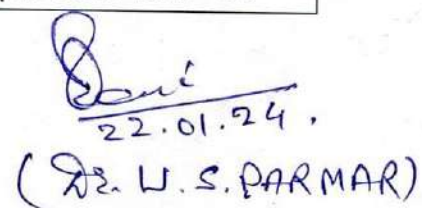 22.01.24.
(Dr. W. S. PARMAR)